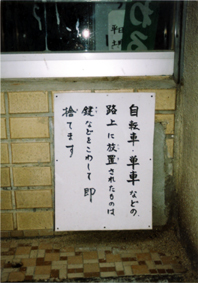 自転車・単車などの
路上に放置されたものは
鍵などをこわして即
捨てます